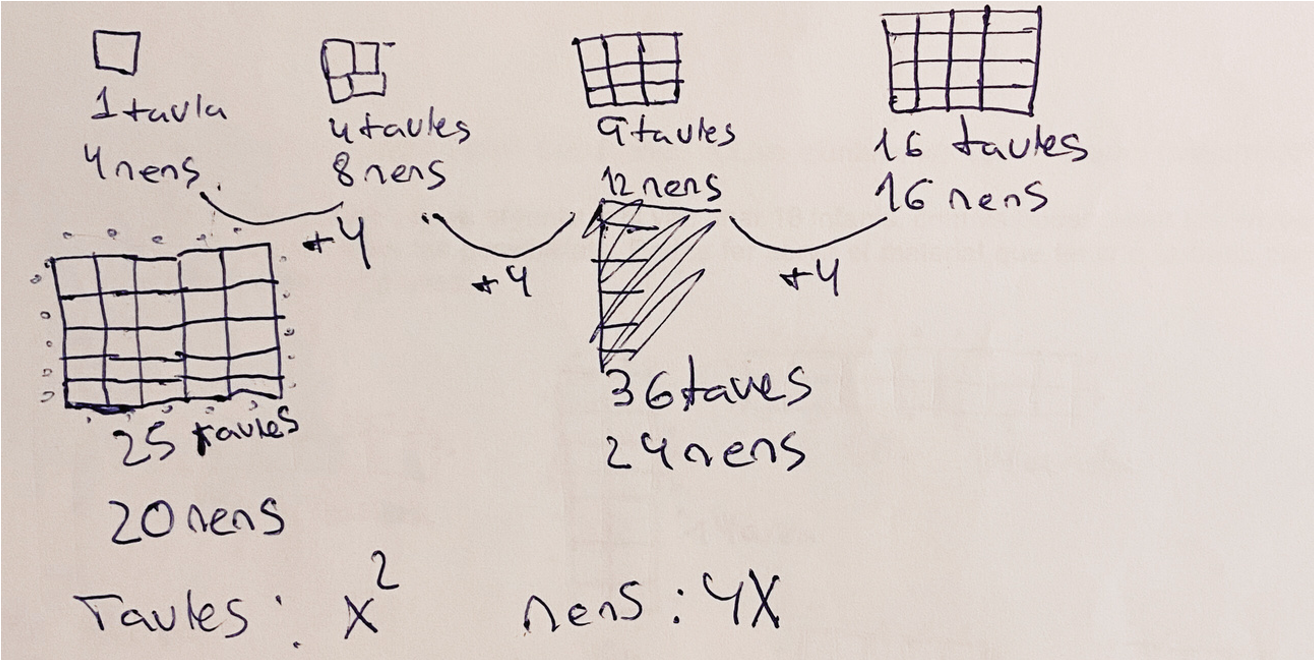 1 taula
4 nens
4 taules
8 nens
9 taules
12 nens
16 taules
16 nens
+4
+4
+4
25 taules
20 nens
36 taues
24 nens
Taules: x²
nens: 4X